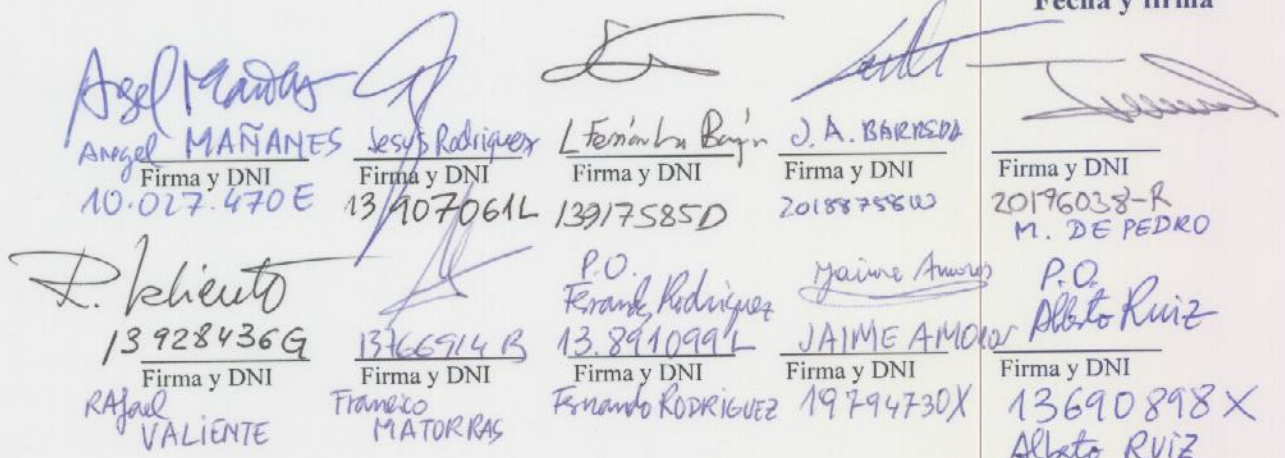 Fecha y firma
Angel MAÑANES
Firma y DNI
10.027.470E
Jesús Rodriguez
Firma y DNI
13907061L
L Fernández Bayón
Firma y DNI
13917585D
J. A. BARREDA
Firma y DNI
20188758W
Firma y DNI
20196038-R
M. DE PEDRO
R. Valiente
13928436G
Firma y DNI
RAfael
VALIENTE
13766914 B
Firma y DNI
Francisco
MATORRAS
P.O.
Fernando Rodriguez
13.891099L
Firma y DNI
Fernando RODRIGUEZ
Jaime Amoros
JAIME AMOROS
Firma y DNI
19794730X
P.O.
Alberto Ruiz
Firma y DNI
13690898X
Alberto RUIZ